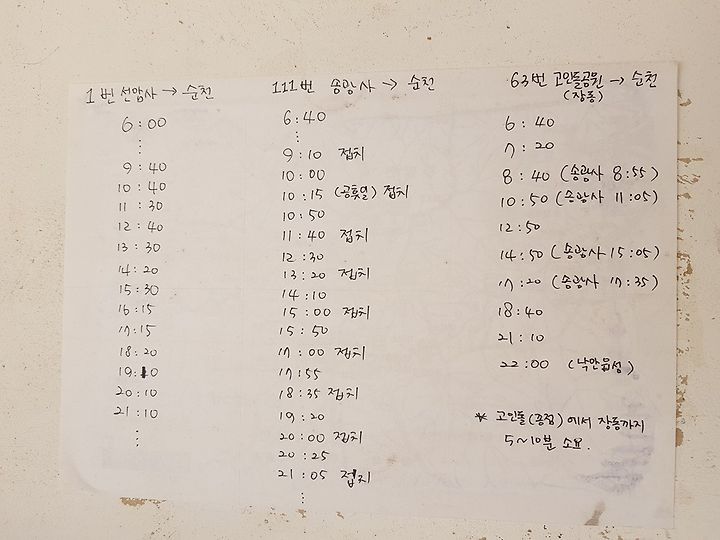 1번 선암사 → 순천
6:00
⋮
9:40
10:40
11:30
12:40
13:30
14:20
15:30
16:15
17:15
18:20
19:10
20:10
21:10
⋮
111번 송광사 → 순천
6:40
⋮
9:10 접치
10:00
10:15 (공휴일) 접치
10:50
11:40 접치
12:30
13:20 접치
14:10
15:00 접치
15:50
17:00 접치
17:55
18:35 접치
19:20
20:00 접치
20:25
21:05 접치
⋮
63번 고인돌공원 → 순천
(장동)
6:40
7:20
8:40 (송광사 8:55)
10:50 (송광사 11:05)
12:50
14:50 (송광사 15:05)
17:20 (송광사 17:35)
18:40
21:10
22:00 (낙안읍성)
* 고인돌(종점)에서 장동까지
5~10분 소요.